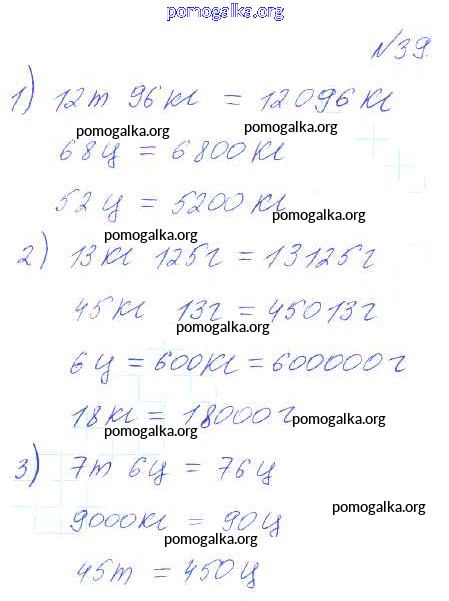 pomogalka.org
№39.
1) 12т 96кг = 12096кг
pomogalka.org pomogalka.org
68ц = 6800кг
52ц = 5200кг
pomogalka.org
pomogalka.org
2) 13кг 125г = 13125г
45кг 13г = 45013г
pomogalka.org
6ц = 600кг = 600000г
18кг = 18000г
pomogalka.org pomogalka.org
3) 7т 6ц = 76ц
pomogalka.org
9000кг = 90ц
pomogalka.org
45т = 450ц
pomogalka.org